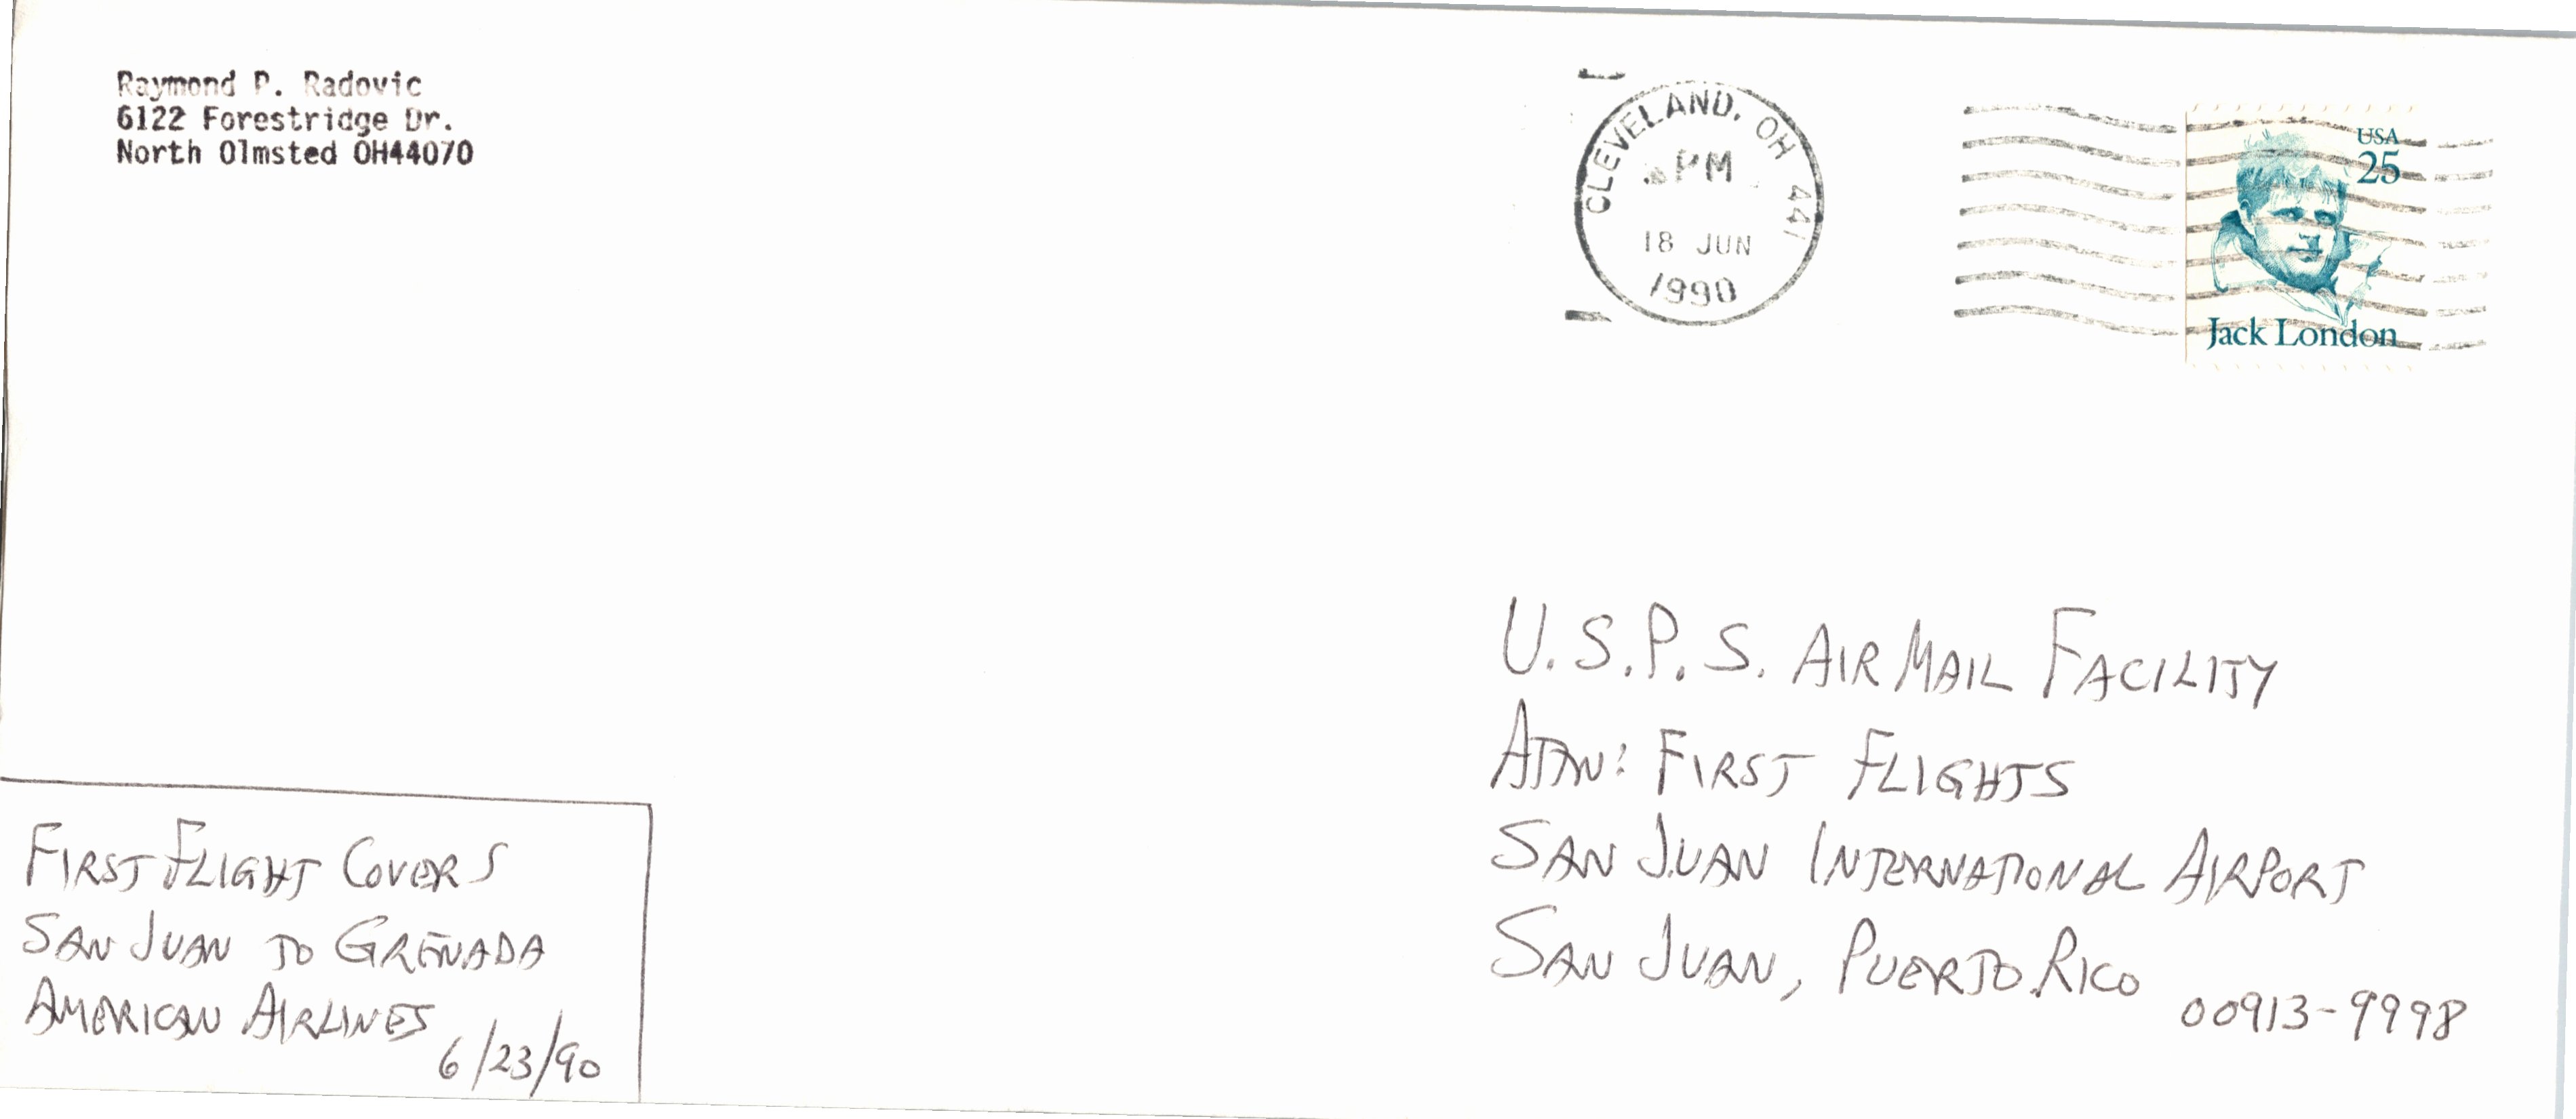 Raymond P. Radovic
6122 Forestridge Dr.
North Olmsted OH44070
CLEVELAND, OH 441
PM
18 JUN
1990
USA
25
Jack London
U.S.P.S. AIR MAIL FACILITY
ATTN: FIRST FLIGHTS
SAN JUAN INTERNATIONAL AIRPORT
SAN JUAN, PUERTO RICO 00913-9998
FIRST FLIGHT COVERS
SAN JUAN TO GRENADA
AMERICAN AIRLINES
6/23/90